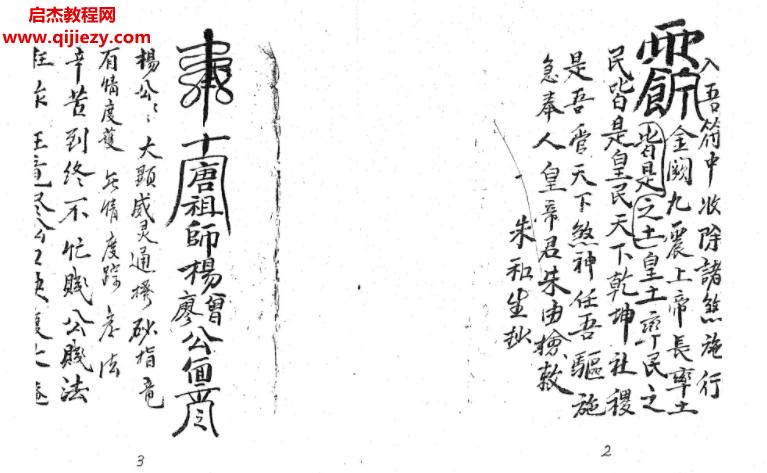 启杰教程网
www.qijiezy.com
入吾符中收除諸煞施行
金闕九震上帝長率土
皆是之土皇土率民之
民皆是皇民天下乾坤社稷
是吾管天下煞神任吾驅施
急奉人皇帝君朱由撿敕
朱和生抄
2
唐祖師楊曾廖公
楊公〻大顯威灵通撥砂指竜
有情度護 無情度踪 法
辛苦到終不忙賤公賤法
3